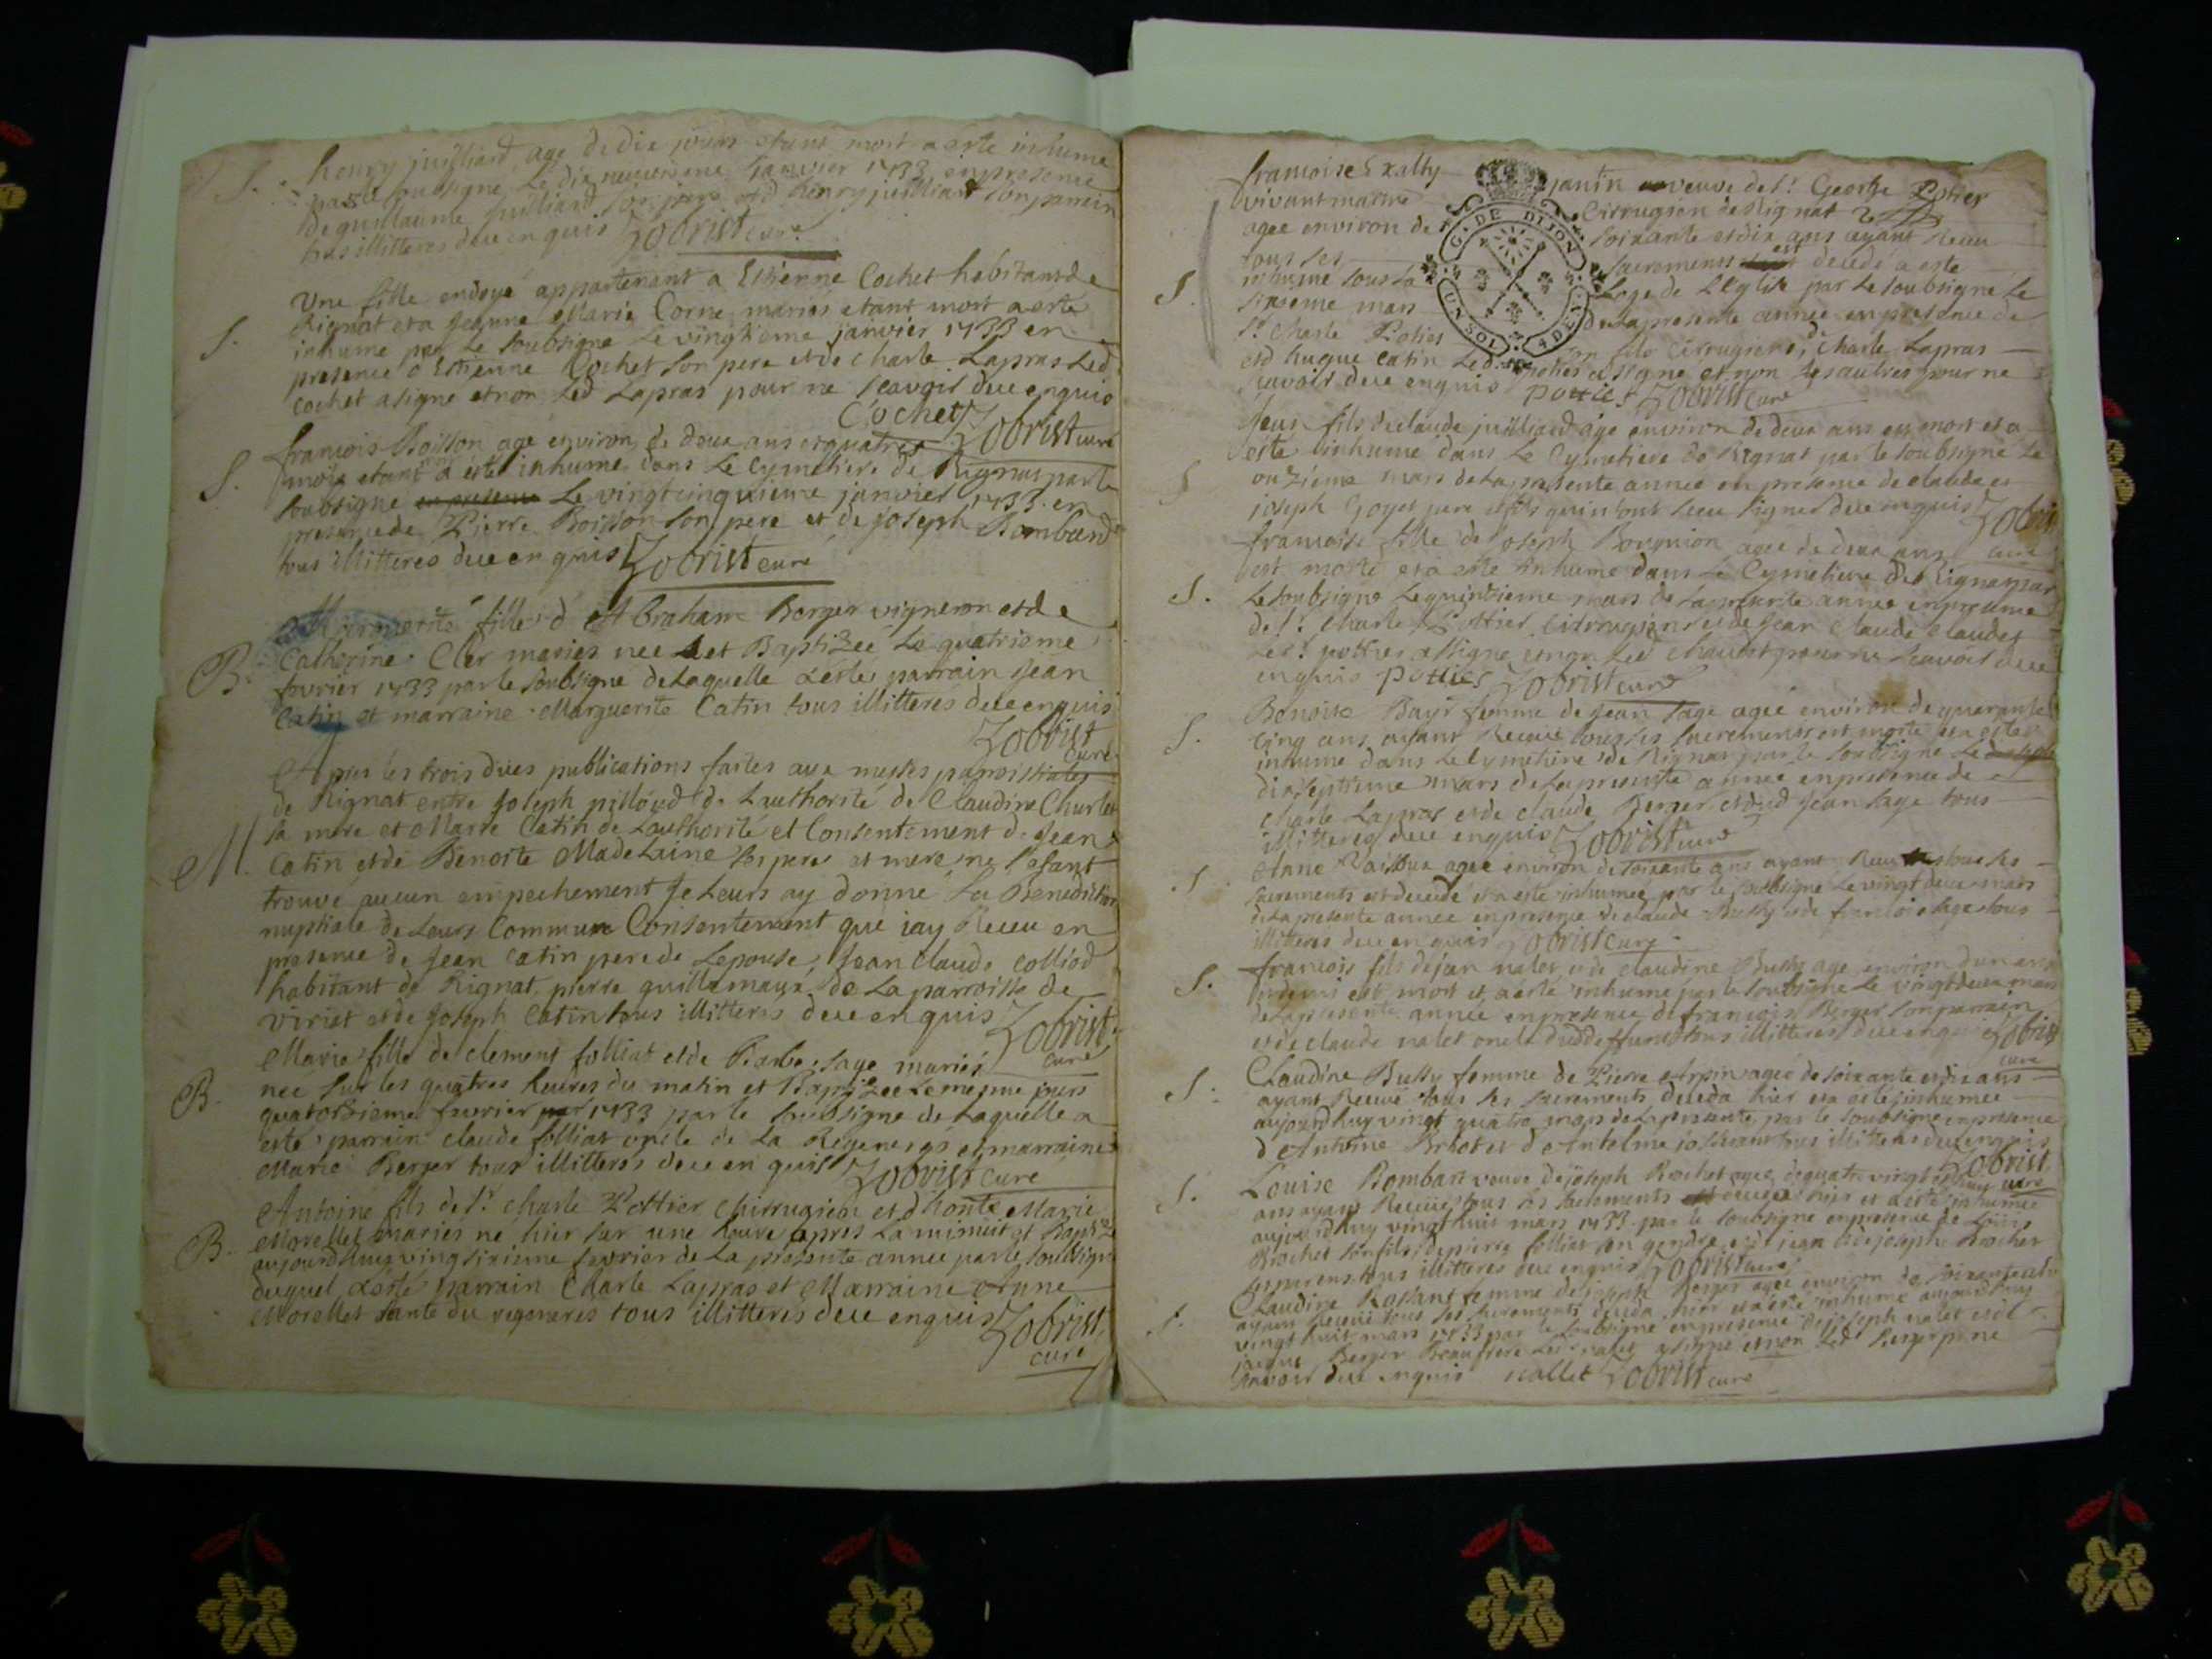 S. henry juilliard age de dix jours etant mort a esté inhumé
par le soubsigné le dix neuvieme janvier 1733 en presence
de guillaume juilliard son pere et d henry juilliard son parrein
tous illitteres deue enquis Zobrist curé
Une fille endoyé appartenant a Estienne Cochet habitant de
Rignat et a Jeanne Marie Corne mariés etant mort a esté
S. inhume par le soubsigné le vingtieme janvier 1733 en
presence d'Estienne Cochet son pere et de charle Lapras led
cochet a signe et non led Lapras pour ne scavoir deue enquis
Cochet Zobrist curé
francois Boisson agé environ de deux ans et quatres
S. mois etant mort a esté inhumé dans le Cymetiere de Rignat par le
soubsigne en presence Le vingt cinquieme janvier 1733 en
presence de Pierre Boisson son pere et de joseph Rombard
tous illitteres deue enquis Zobrist curé
Marguerite fille d'Abraham Berger vigneron et de
Catherine Cler mariés née et Baptizée Le quatrieme
B. fevrier 1733 par le soubsigné de laquelle a esté parrain Jean
Catin et marraine Marguerite Catin tous illitteres deue enquis
Zobrist
curé
Apres les trois dües publications faites aux messes parroissiales
de Rignat entre Joseph pilloud de Lauthorité de Claudine Charles
sa mere et Marie Catin de Lauthorité et Consentement de Jean
M. Catin et de Benoite Madelaine ses pere et mere ne s'estant
trouvé aucun empechement Je Leurs ay donné La Benediction
nuptiale de Leurs Commun Consentement que jay Receu en
presence de Jean Catin pere de Lepouse, Jean claude colliod
habitant de Rignat, pierre guillemaux de La parroisse de
Viriat et de Joseph Catin tous illitteres deue enquis Zobrist
curé
Marie fille de clement folliat et de Barbe sage mariés
née sur les quatres heures du matin et Baptizée le mesme jours
B. quatorzieme fevrier 1733 par le soubsigné de Laquelle a
esté parrain claude folliat oncle de La Regeneres et marraine
Marie Berger tous illitteres deue enquis Zobrist curé
Antoine fils de Sr charle Pottier chirrugien et d honte Marie
Morellet mariés né hier sur une heure apres La minuit et Baptizé
B. aujourdhuy vingt sixieme fevrier de La presente année par le soubsigné
duquel a esté parrain Charle Lapras et Marraine Anne
Morellet tante du regeneres tous illitteres deue enquis Zobrist
curé
francoise janin veuve de Sr George Potier
vivant Cirrugien de Rignat
agee environ de soixante et dix ans ayant Receu
tous ses sacrements est decedé a esté
S. inhumé sous la Loge de LEglise par le soubsigné le
sixieme mars de la presente année en presence de
Sr Charle Potier son fils Cirrugien, de Charle Lapras
et d hugue Catin Led Sr potier a signe et non les autres pour ne
scavoir deue enquis Pottier Zobrist curé
G. DE DIJON
UN SOL 4 DEN.
Jean fils de claude juilliard agé environ de deux ans est mort et a
esté inhumé dans Le Cymetiere de Rignat par le soubsigné le
S. onzieme mars de La presente année en presence de claude et
joseph Goyet pere et fils qui n'ont sceu signer deue enquis Zobrist
curé
francoise fille de Joseph Bouvnion agee de deux ans
est morte et a esté inhumé dans Le Cymetiere de Rignat par
S. Le soubsigne Le quinzieme mars de La presente année en presence
de Sr Charle Pottier Cirrugien et de Jean Claude
Le Sr pottier a signe et non Led pour ne scavoir deue
enquis Pottier Zobrist curé
Benoite Bayr femme de Jean sage agée environ de quarante
S. cinq ans ayant Receue tous ses sacrements est morte et a esté
inhume dans Le Cymetiere de Rignat par le soubsigné Le
dixseptieme mars de La presente année en presence de
charle Lapras et de claude Berger et dud Jean sage tous
illitteres deue enquis Zobrist curé
S. Anne agée environ de soixante ans ayant Receu tous ses
sacrements est decedé et a esté inhumée par le soubsigné Le vingt deux mars
de La presente année en presence de claude Bussy et de francois sage tous
illitteres deue enquis Zobrist curé
S. francois fils de jean nalet et de claudine Bussy agé environ d'un ans
et demi est mort et a esté inhumé par le soubsigné Le vingt deux mars
de La presente année en presence de francois Berger son parrain
et de claude nalet oncle dud deffunct tous illitteres deue enquis Zobrist
curé
S. Claudine Bussy femme de Pierre Arpin agée de soixante et dix ans
ayant Receue tous ses sacrements deceda hier et a esté inhumee
aujourdhuy vingt quatre mars de La presente par le soubsigné en presence
d'Antoine et d'Antelme tous illitteres deue enquis
Zobrist
curé
S. Louise Rombart veuve de joseph Rochet agée de quatre vingt
ans ayant Receüe tous ses sacrements hier et a esté inhumée
aujourdhuy vingt huit mars 1733 par le soubsigné en presence de Louis
Rochet son fils, de pierre folliat son gendre, et de jean et de joseph Rochet
ses parens tous illitteres deue enquis Zobrist curé
Claudine Rossant femme de joseph Berger agée environ de soixante ans
S. ayant Receue tous ses sacrements deceda hier et a esté inhumé aujourdhuy
vingt huit mars 1733 par le soubsigné en presence de joseph nalet et de
jacque Berger Beaufrere Led nalet a signé et non Led Berger p ne
scavoir deue enquis nallet Zobrist curé